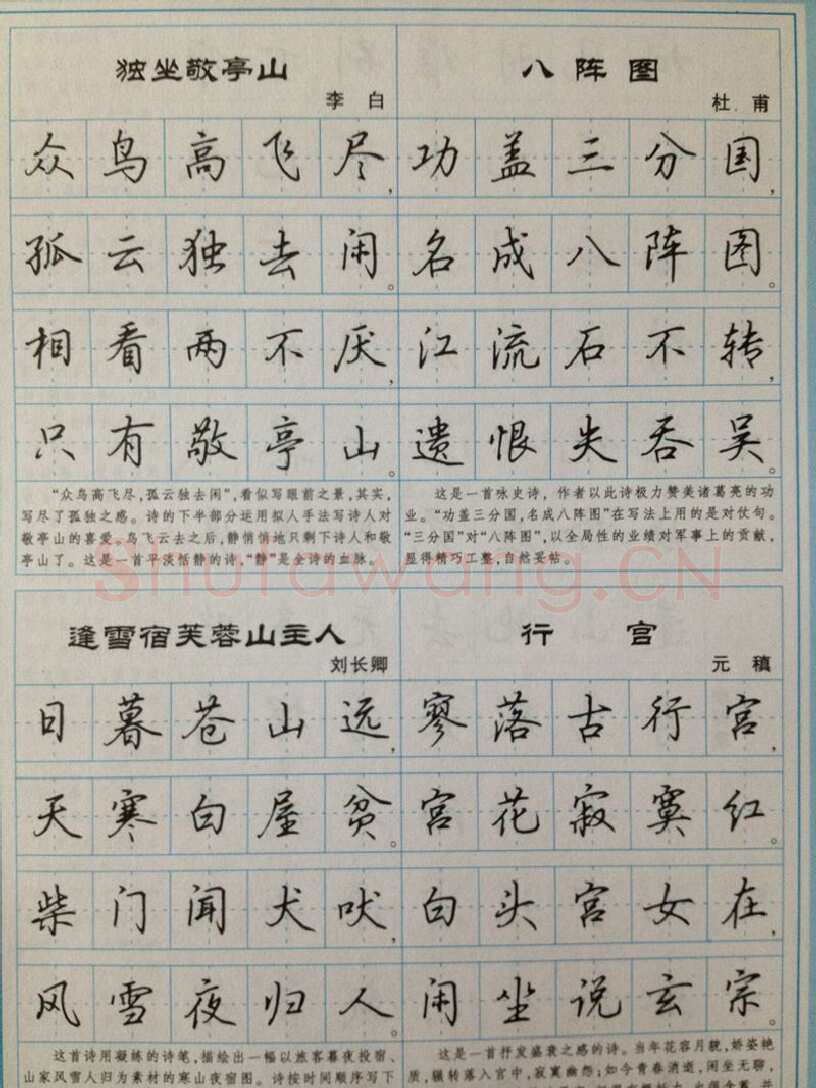 独坐敬亭山
李白
众鸟高飞尽，
孤云独去闲。
相看两不厌，
只有敬亭山。
“众鸟高飞尽，孤云独去闲”，看似写眼前之景，其实，
写尽了孤独之感。诗的下半部分运用拟人手法写诗人对
敬亭山的喜爱。鸟飞云去之后，静悄悄地只剩下诗人和敬
亭山了。这是一首平淡恬静的诗，“静”是全诗的血脉。
八阵图
杜甫
功盖三分国，
名成八阵图。
江流石不转，
遗恨失吞吴。
这是一首咏史诗，作者以此诗极力赞美诸葛亮的功
业。“功盖三分国，名成八阵图”在写法上用的是对仗句。
“三分国”对“八阵图”，以全局性的业绩对军事上的贡献，
显得精巧工整，自然妥帖。
Shufawang.CN
逢雪宿芙蓉山主人
刘长卿
日暮苍山远，
天寒白屋贫。
柴门闻犬吠，
风雪夜归人。
这首诗用凝练的诗笔，描绘出一幅以旅客暮夜投宿、
山家风雪人归为素材的寒山夜宿图。诗按时间顺序写下
行宫
元稹
寥落古行宫，
宫花寂寞红。
白头宫女在，
闲坐说玄宗。
这是一首抒发盛衰之感的诗。当年花容月貌，娇姿艳
质，辗转落入宫中，寂寞幽怨；如今青春消逝，闲坐无聊，